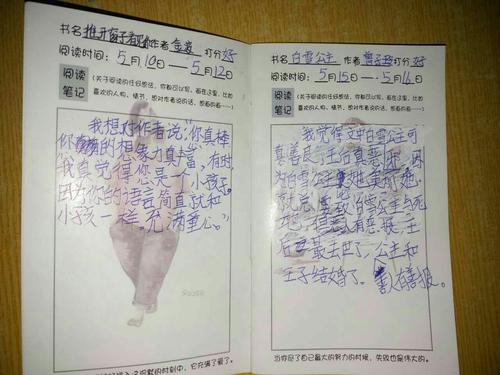 书名 推开窗子看见你 作者 金波 打分 好
阅读时间：5月10日——5月12日
阅读
笔记
（关于阅读的任何想法，你都可以写，画在这里，比如
喜欢的人物、情节，想对作者说的话，想画的画……）
我想对作者说：“你真棒
你的想象力真丰富，有时
我真觉得您是一个小孩子。
因为你的语言简直就和
小孩一样。充满童心。”
书名 白雪公主 作者 打分 好
阅读时间：5月15日——5月16日
阅读
笔记
（关于阅读的任何想法，你都可以写，画在这里，比如
喜欢的人物、情节，想对作者说的话，想画的画……）
我觉得文中白雪公主可
真善良，王后真恶毒，因
为白雪公主比她美丽，她
就 要致白雪公主与死
地，但恶人有恶报，王
后 最后 死了，公主和
王子结婚了。善人有善报。
当你尽了自己最大的努力的时候，失败也是伟大的。